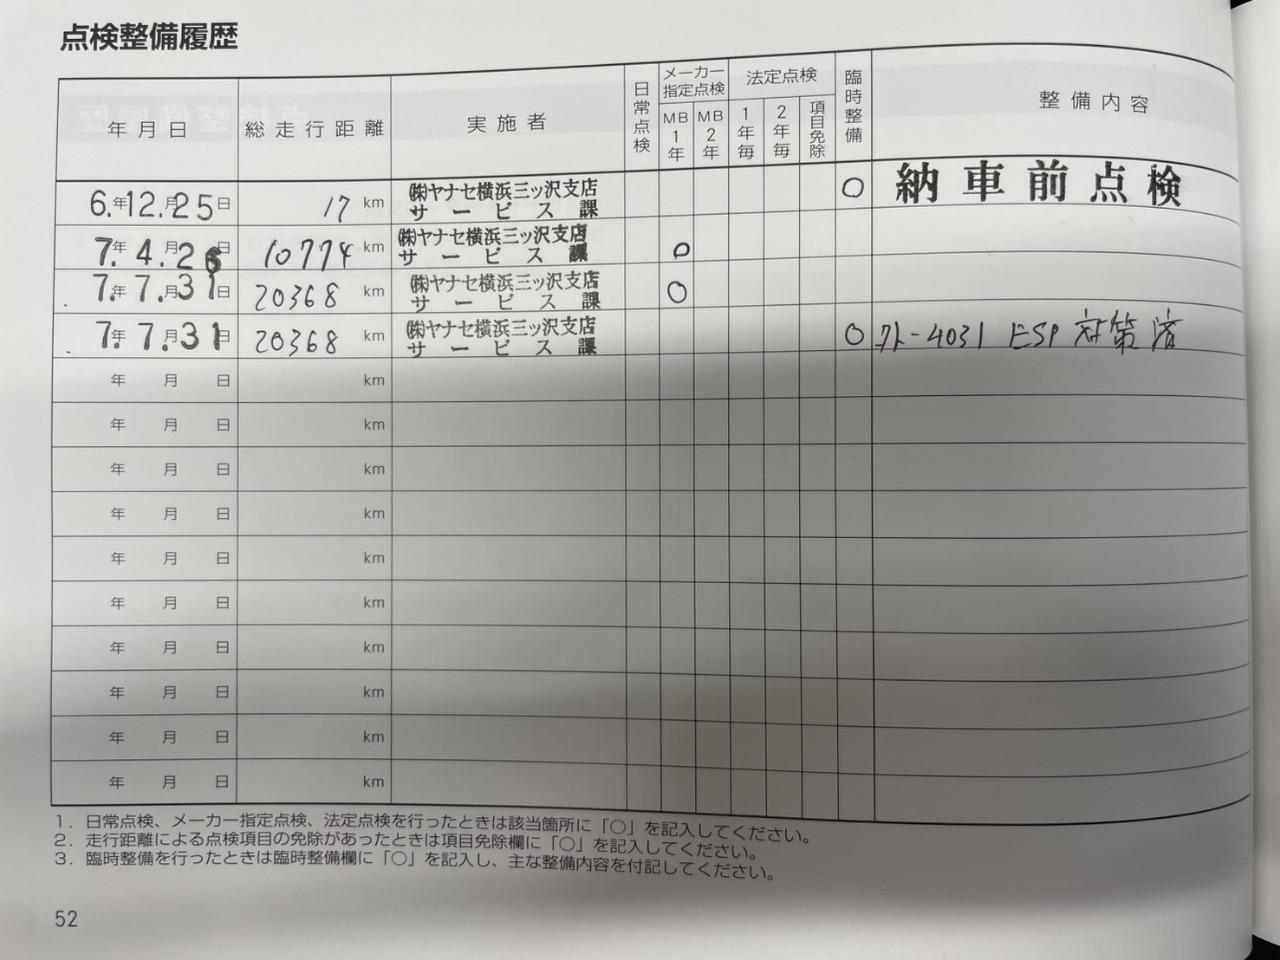 点検整備履歴
年月日 総走行距離 実施者 日常点検 メーカー指定点検 MB1年 MB2年 法定点検 1年毎 2年毎 項目免除 臨時整備 整備内容
6.年12.月25日 17 km ㈱ヤナセ横浜三ッ沢支店 ○ 納車前点検
サービス課
7.年4.月26日 10774 km ㈱ヤナセ横浜三ッ沢支店 ○
サービス課
7.年7.月31日 20368 km ㈱ヤナセ横浜三ッ沢支店 ○
サービス課
7.年7.月31日 20368 km ㈱ヤナセ横浜三ッ沢支店 ○ -4031 ESP 対策済
サービス課
年 月 日 km
年 月 日 km
年 月 日 km
年 月 日 km
年 月 日 km
年 月 日 km
年 月 日 km
年 月 日 km
年 月 日 km
年 月 日 km
1. 日常点検、メーカー指定点検、法定点検を行ったときは該当箇所に「○」を記入してください。
2. 走行距離による点検項目の免除があったときは項目免除欄に「○」を記入してください。
3. 臨時整備を行ったときは臨時整備欄に「○」を記入し、主な整備内容を付記してください。
52